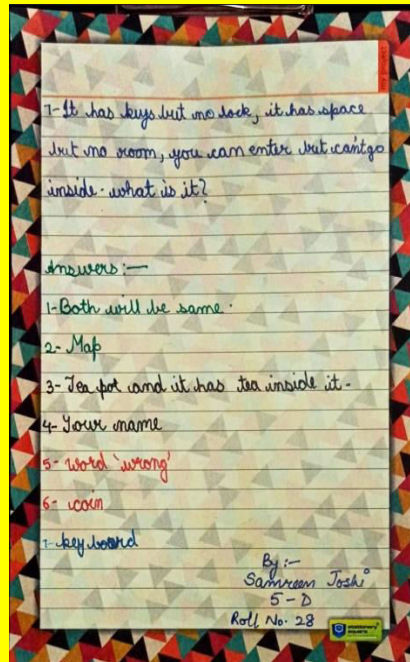 my project
7- It has keys but no lock, it has space
but no room, you can enter but can't go
inside. what is it?
Answers:-
1- Both will be same.
2- Map
3- Tea pot and it has tea inside it-
4- Your name
5- word 'wrong'
6- coin
7- key board
By:-
Samreen Joshi
5-D
Roll No. 28